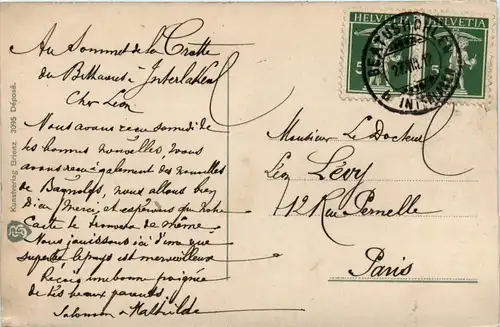 Au Sommet de la Grotte
du Béthaus à Interlaken
Cher Léon
Nous avons reçu samedi de
tes bonnes nouvelles, nous
avons reçu également des nouvelles
de Bagnols, nous allons bien
Dieu merci, et espérons que notre
Carte te trouvera de même
Nous jouissons ici d'une vue
superbe le pays est merveilleux
Reçois une bonne poignée
de tes beaux parents.
Salomon & Mathilde
Kunstverlag Brienz 3095 Déposé.
HELVETIA HELVETIA
5
BEATUSHÖHLEN
INTERLAKEN
Monsieur Le Docteur
Léon Lévy
12 Rue Pernelle
Paris